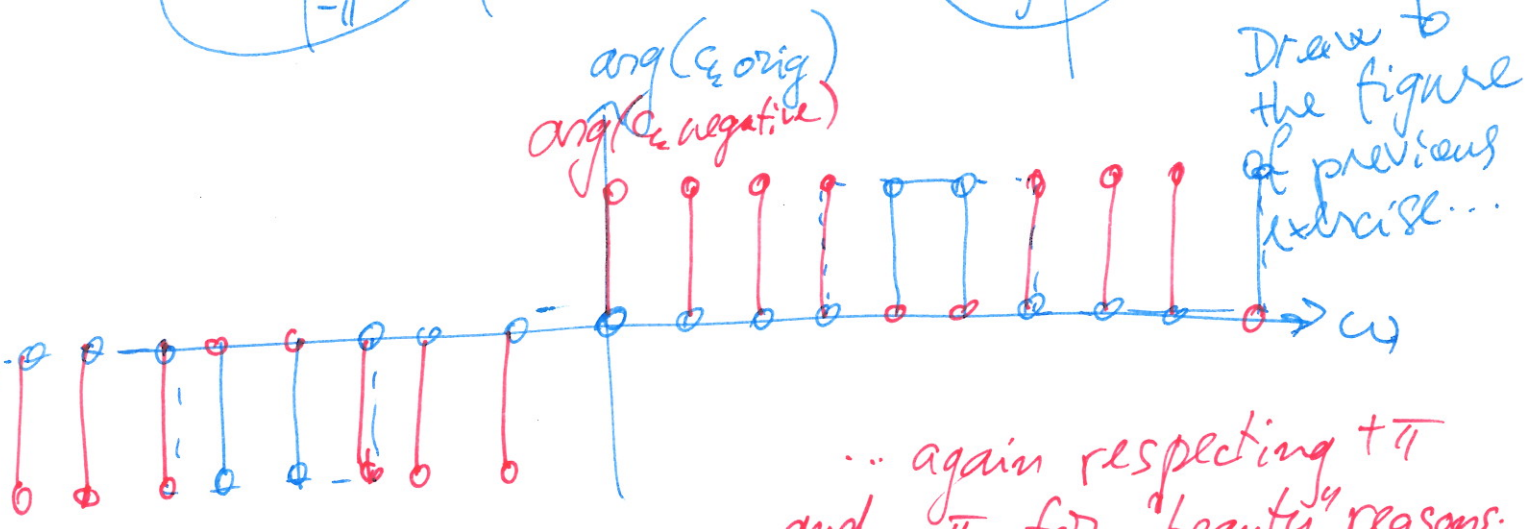 -π
arg(cₖ orig)
arg(cₖ negative)
Draw to
the figure
of previous
exercise...
ω
... again respecting +π
and -π for "beauty" reasons.